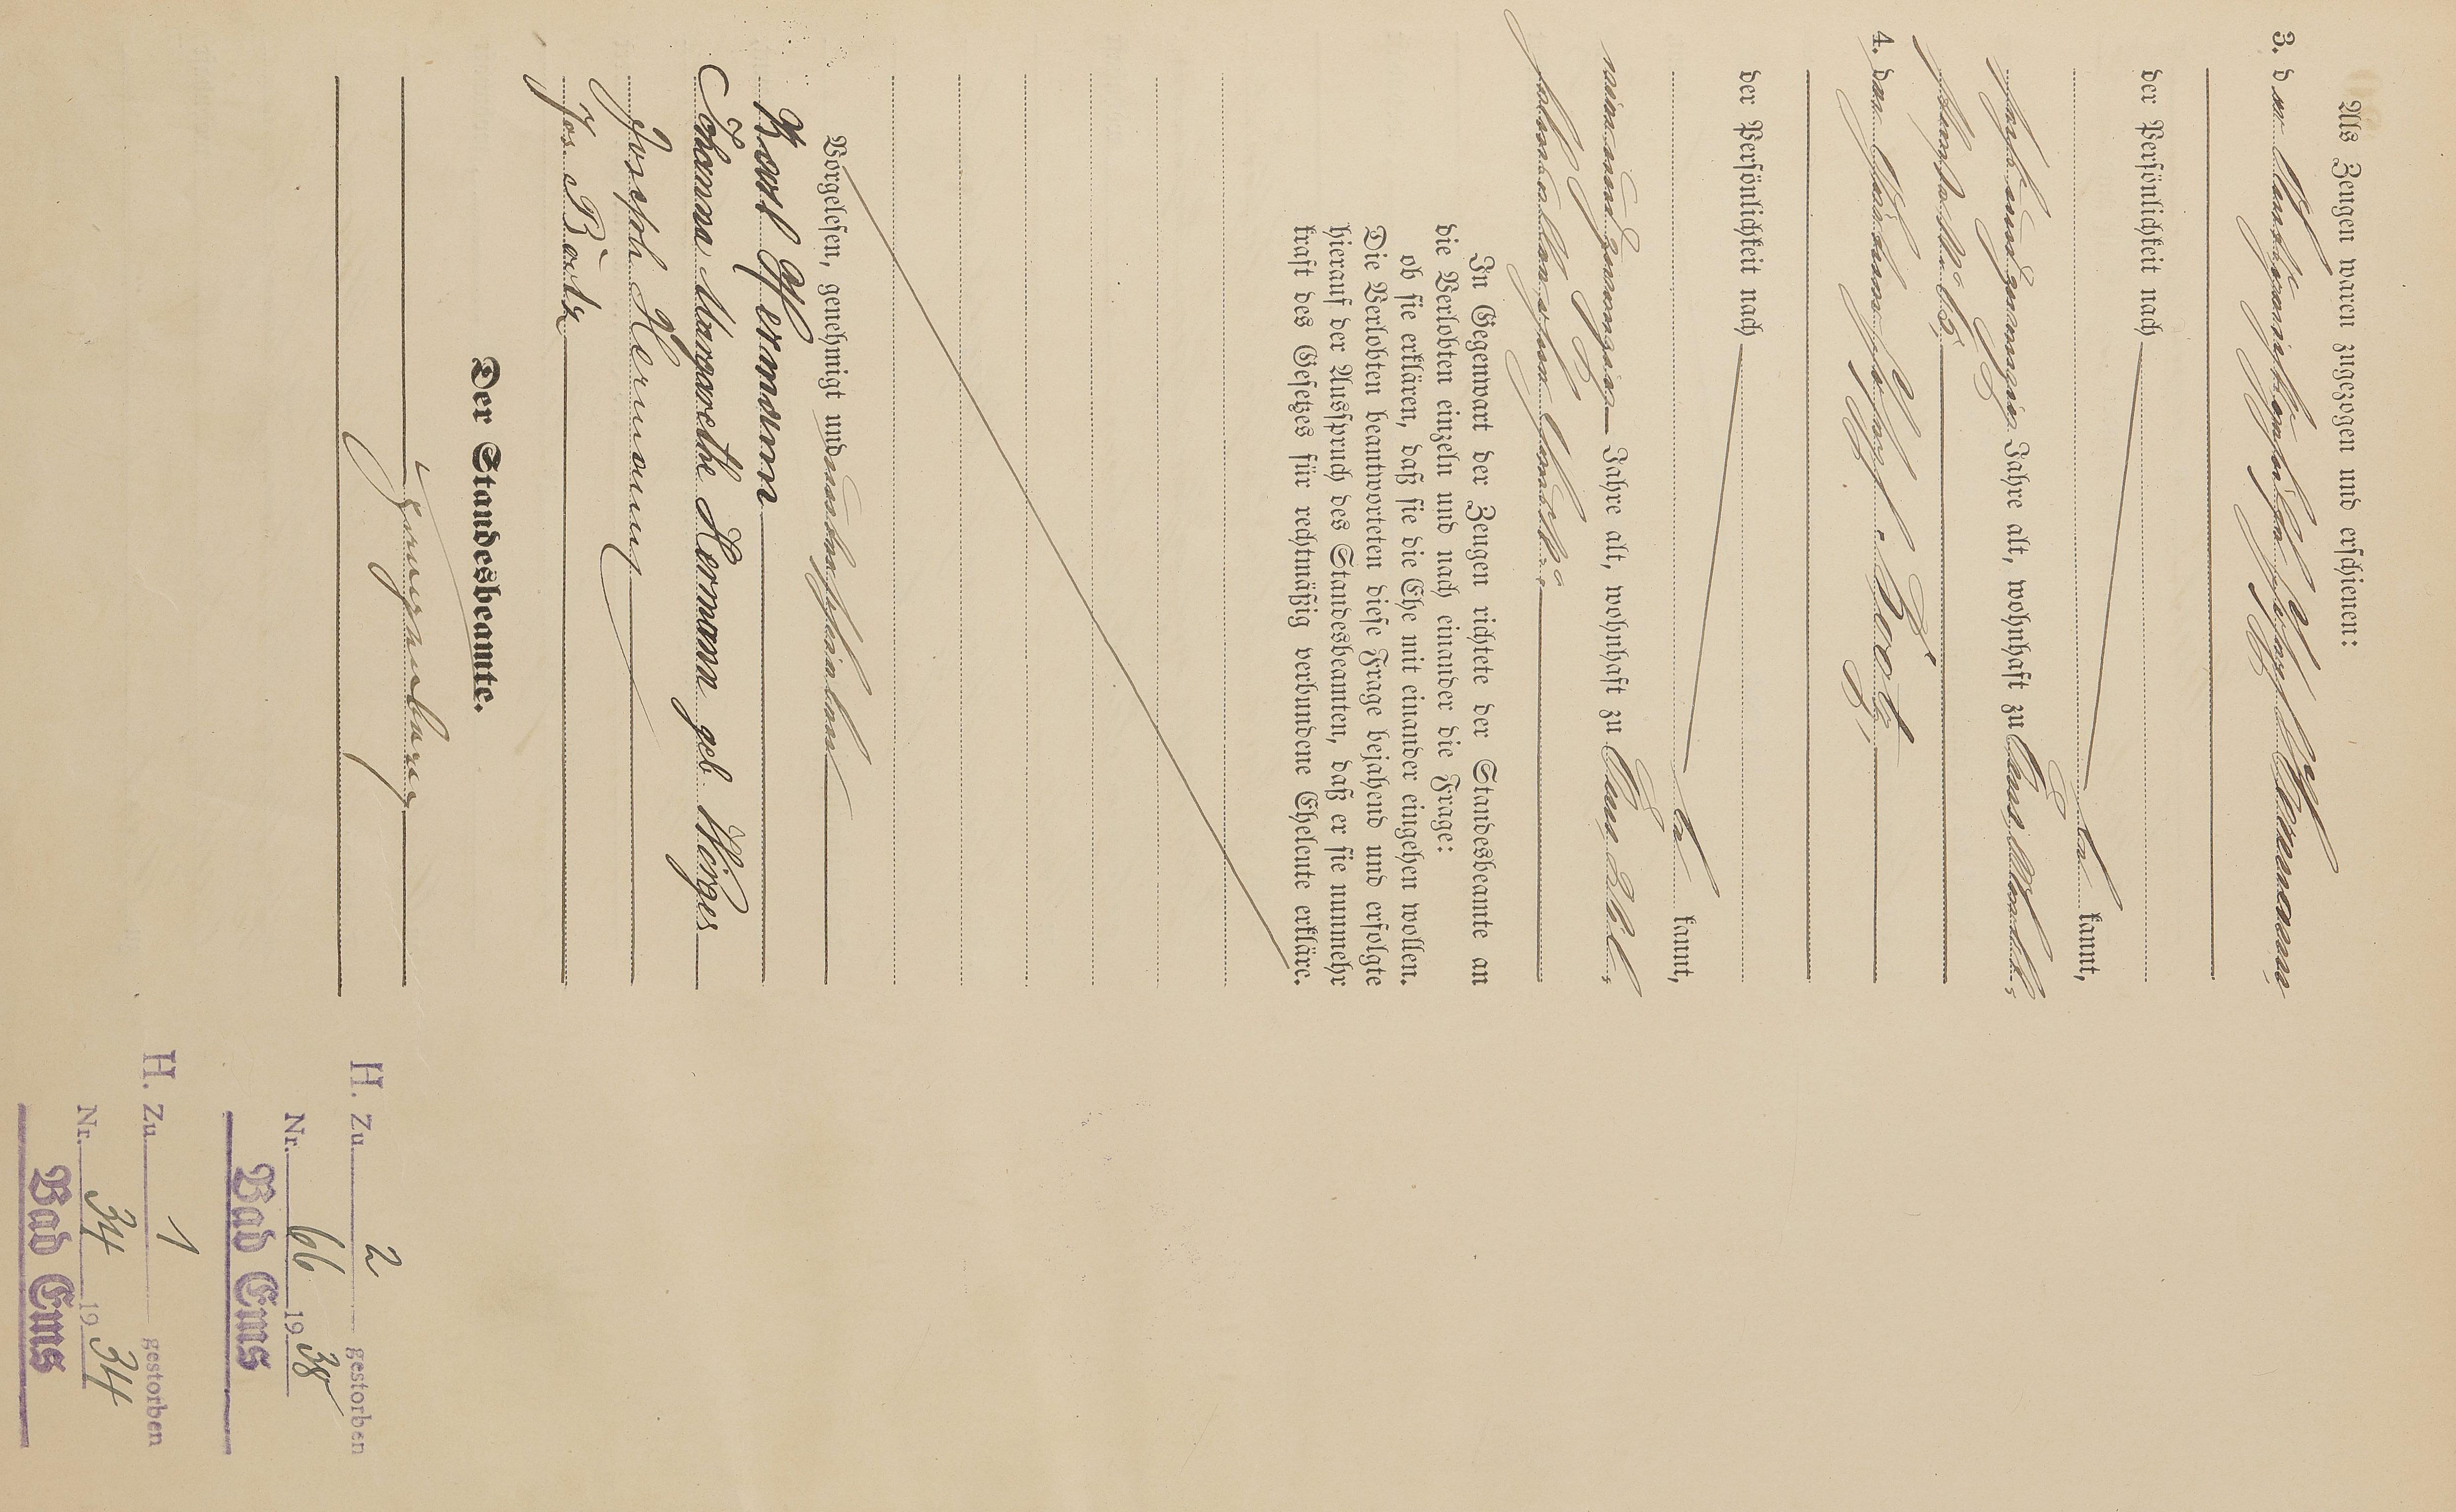 Als Zeugen waren zugezogen und erschienen:
3. der Joseph Hermann,
der Persönlichkeit nach
be kannt,
sechs und zwanzig Jahre alt, wohnhaft zu
4. der Joseph Bootz,
der Persönlichkeit nach
be kannt,
neun und zwanzig Jahre alt, wohnhaft zu Ems
In Gegenwart der Zeugen richtete der Standesbeamte an
die Verlobten einzeln und nach einander die Frage:
ob sie erklären, daß sie die Ehe mit einander eingehen wollen.
Die Verlobten beantworteten diese Frage bejahend und erfolgte
hierauf der Ausspruch des Standesbeamten, daß er sie nunmehr
kraft des Gesetzes für rechtmäßig verbundene Eheleute erkläre.
Vorgelesen, genehmigt und unterschrieben
Karl Hermann
Johanna Margarethe Hermann geb Wirges
Joseph Hermann
Jos. Bootz
Der Standesbeamte.
H. Zu 2 gestorben
Nr. 66 1938
Bad Ems
H. Zu 1 gestorben
Nr. 34 1934
Bad Ems